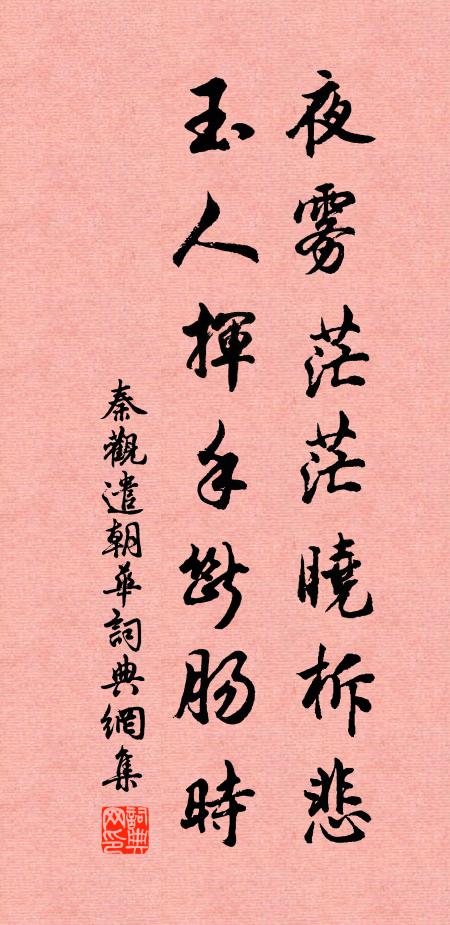 夜雾茫茫曉柝悲
玉人揮手斷腸時
秦觀遣朝華詞典網集
詞典网印